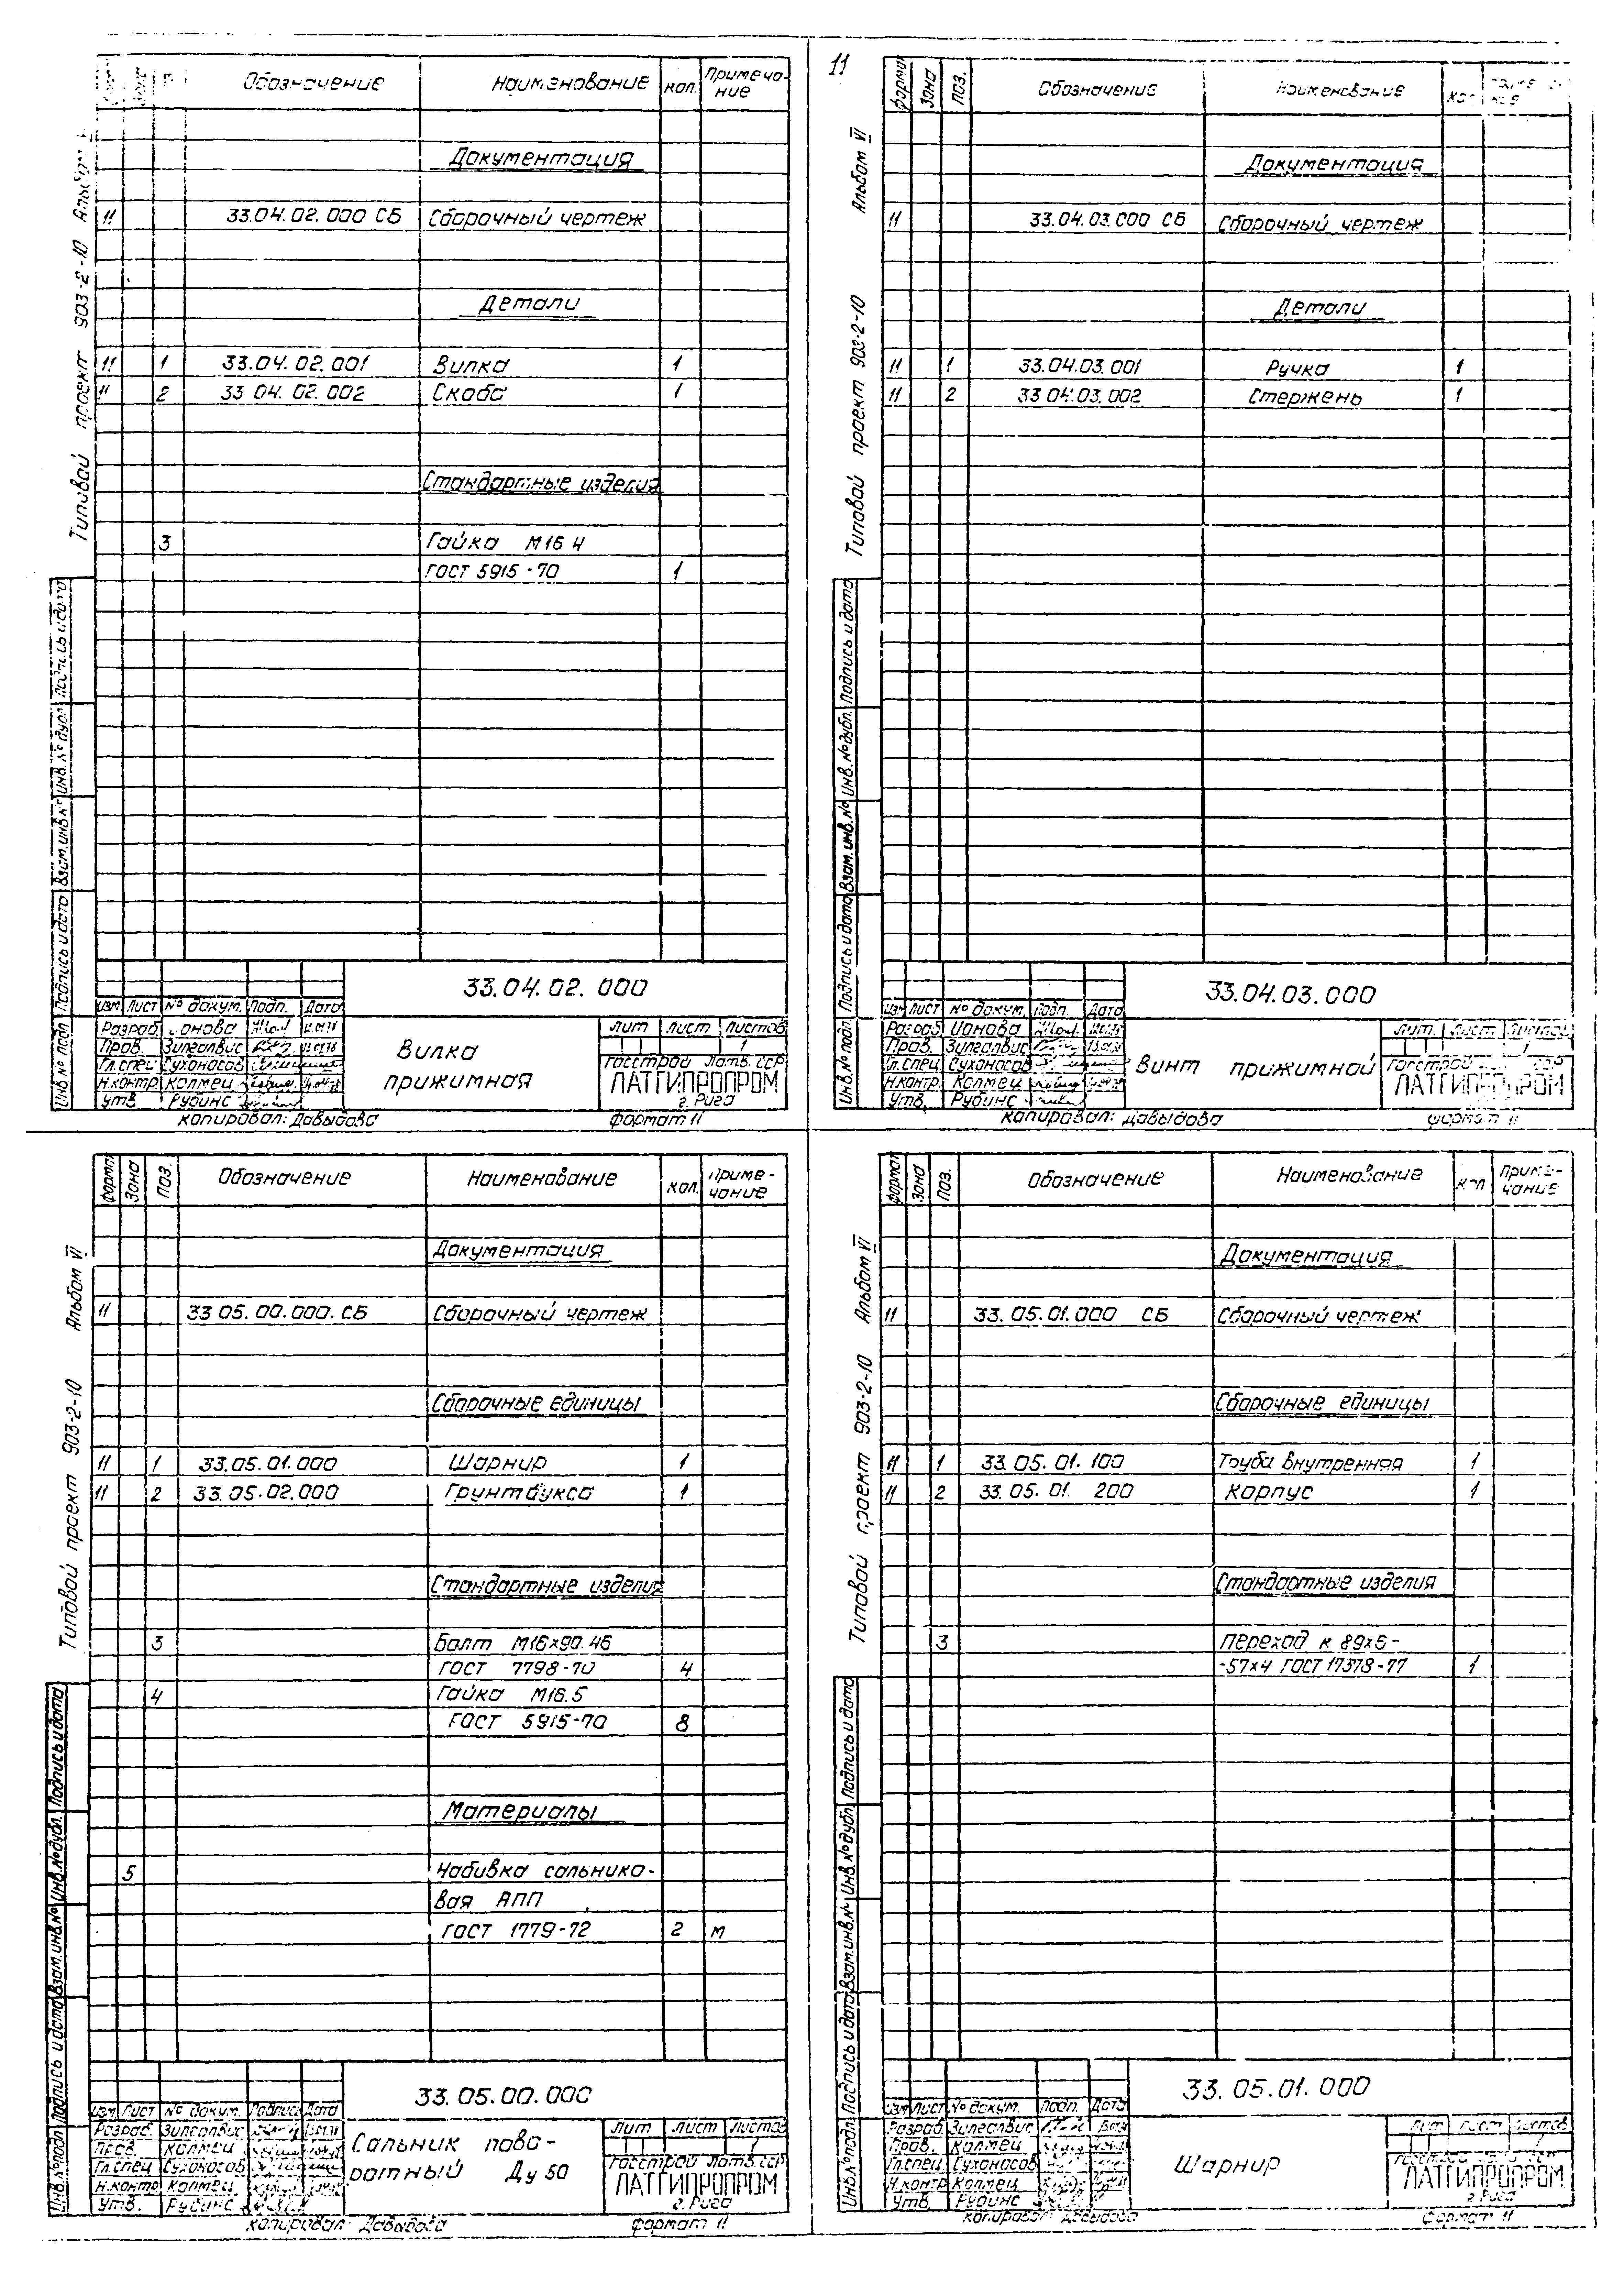 11
Обозначение Наименование кол. Примеча-
ние
Документация
11 33.04.02.000 СБ Сборочный чертеж
Детали
11 1 33.04.02.001 Вилка 1
11 2 33.04.02.002 Скоба 1
Стандартные изделия
3 Гайка М16 4
ГОСТ 5915-70 1
Типовой проект 903-2-10
Подпись и дата
Инв. № дубл.
Взам. инв. №
Подпись и дата
Инв № подл
33.04.02.000
Изм Лист № докум. Подп. Дата
Разраб.
Пров. Зилгалвис
Гл.спец Сухоносов
Н.контр Калмец
Утв Рубинс
Вилка
прижимная
Лит Лист Листов
1
Госстрой Латв.ССР
ЛАТГИПРОПРОМ
г. Рига
Копировал: Давыдова Формат 11
Формат Зона Поз. Обозначение Наименование кол
Документация
11 33.04.03.000 СБ Сборочный чертеж
Детали
11 1 33.04.03.001 Ручка 1
11 2 33.04.03.002 Стержень 1
Типовой проект 903-2-10 Альбом VI
Подпись и дата
Инв. № дубл.
Взам. инв. №
Подпись и дата
Инв. № подл
33.04.03.000
Изм Лист № докум. Подп. Дата
Разраб
Пров. Зилгалвис
Гл.спец Сухоносов
Н.контр. Калмец
Утв. Рубинс
Винт прижимной
Лит. Лист Листов
1
Госстрой
ЛАТГИПРОПРОМ
Копировал: Давыдова Формат 11
Формат Зона Поз. Обозначение Наименование кол. Приме-
чание
Документация
11 33.05.00.000.СБ Сборочный чертеж
Сборочные единицы
11 1 33.05.01.000 Шарнир 1
11 2 33.05.02.000 Грунтбукса 1
Стандартные изделия
3 Болт М16х90.46
ГОСТ 7798-70 4
4 Гайка М16.5
ГОСТ 5915-70 8
Материалы
5 Набивка сальнико-
вая АПП
ГОСТ 1779-72 2 м
Типовой проект 903-2-10 Альбом VI
Подпись и дата
Инв. № дубл.
Взам. инв. №
Подпись и дата
Инв. № подл
33.05.00.000
Изм Лист № докум. Подпись Дата
Разраб. Зилгалвис
Пров. Калмец
Гл.спец Сухоносов
Н.контр Калмец
Утв. Рубинс
Сальник пово-
ротный Ду 50
Лит Лист Листов
1
Госстрой Латв.ССР
ЛАТГИПРОПРОМ
г. Рига
Копировал: Давыдова Формат 11
Формат Зона Поз. Обозначение Наименование кол Приме-
чание
Документация
11 33.05.01.000 СБ Сборочный чертеж
Сборочные единицы
11 1 33.05.01.100 Труба внутренняя 1
11 2 33.05.01.200 Корпус 1
Стандартные изделия
3 Переход к 89х6-
-57х4 ГОСТ 17378-77 1
Типовой проект 903-2-10 Альбом VI
Подпись и дата
Инв. № дубл.
Взам. инв. №
Подпись и дата
Инв. № подл
33.05.01.000
Изм Лист № докум. Подп. Дата
Разраб. Зилгалвис
Пров. Калмец
Гл.спец Сухоносов
Н.контр Калмец
Утв. Рубинс
Шарнир
Лит Лист Листов
ЛАТГИПРОПРОМ
г. Рига
Копировал: Давыдова Формат 11